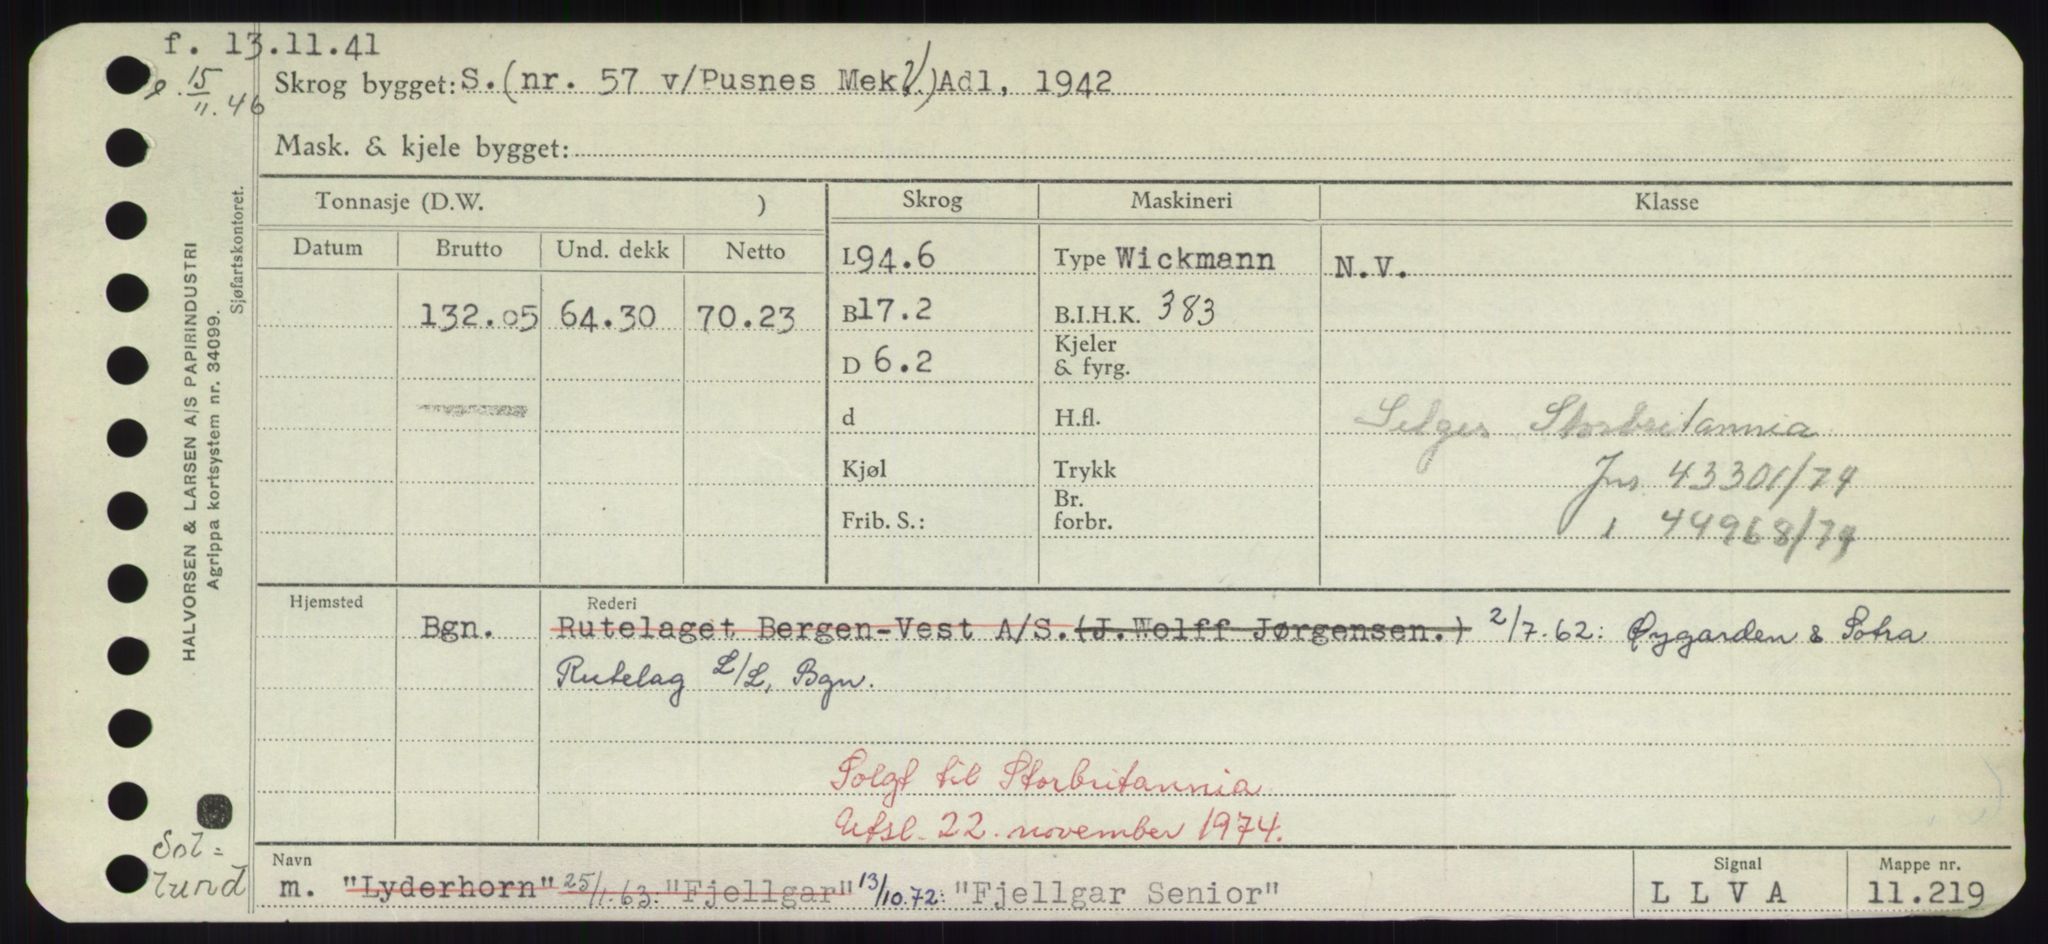 f. 13.11.41
15/11.46
Skrog bygget: S.(nr. 57 v/Pusnes Mek.V.)Adl, 1942
Mask. & kjele bygget:
Tonnasje (D.W. )
Skrog
Maskineri
Klasse
Datum
Brutto
Und. dekk
Netto
132.05
64.30
70.23
L 94.6
B 17.2
D 6.2
d
Kjøl
Frib. S.:
Type Wickmann
B.I.H.K. 383
Kjeler
& fyrg.
H.fl.
Trykk
Br.
forbr.
N.V.
Selges Storbritannia
Jnr. 43301/74
44968/74
Hjemsted
Rederi
Bgn.
Rutelaget Bergen-Vest A/S.(J.Wolff Jørgensen.) 2/7.62: Øygarden & Sotra
Rutelag L/L, Bgn.
Solgt til Storbritannia
Utsl. 22. november 1974.
Navn
m. "Lyderhorn" 25/1.63: "Fjellgar" 13/10.72: "Fjellgar Senior"
Signal
L L V A
Mappe nr.
11.219
HALVORSEN & LARSEN A/S PAPIRINDUSTRI
Agrippa kortsystem nr. 34099.
Sjøfartskontoret.
Sol=
lund